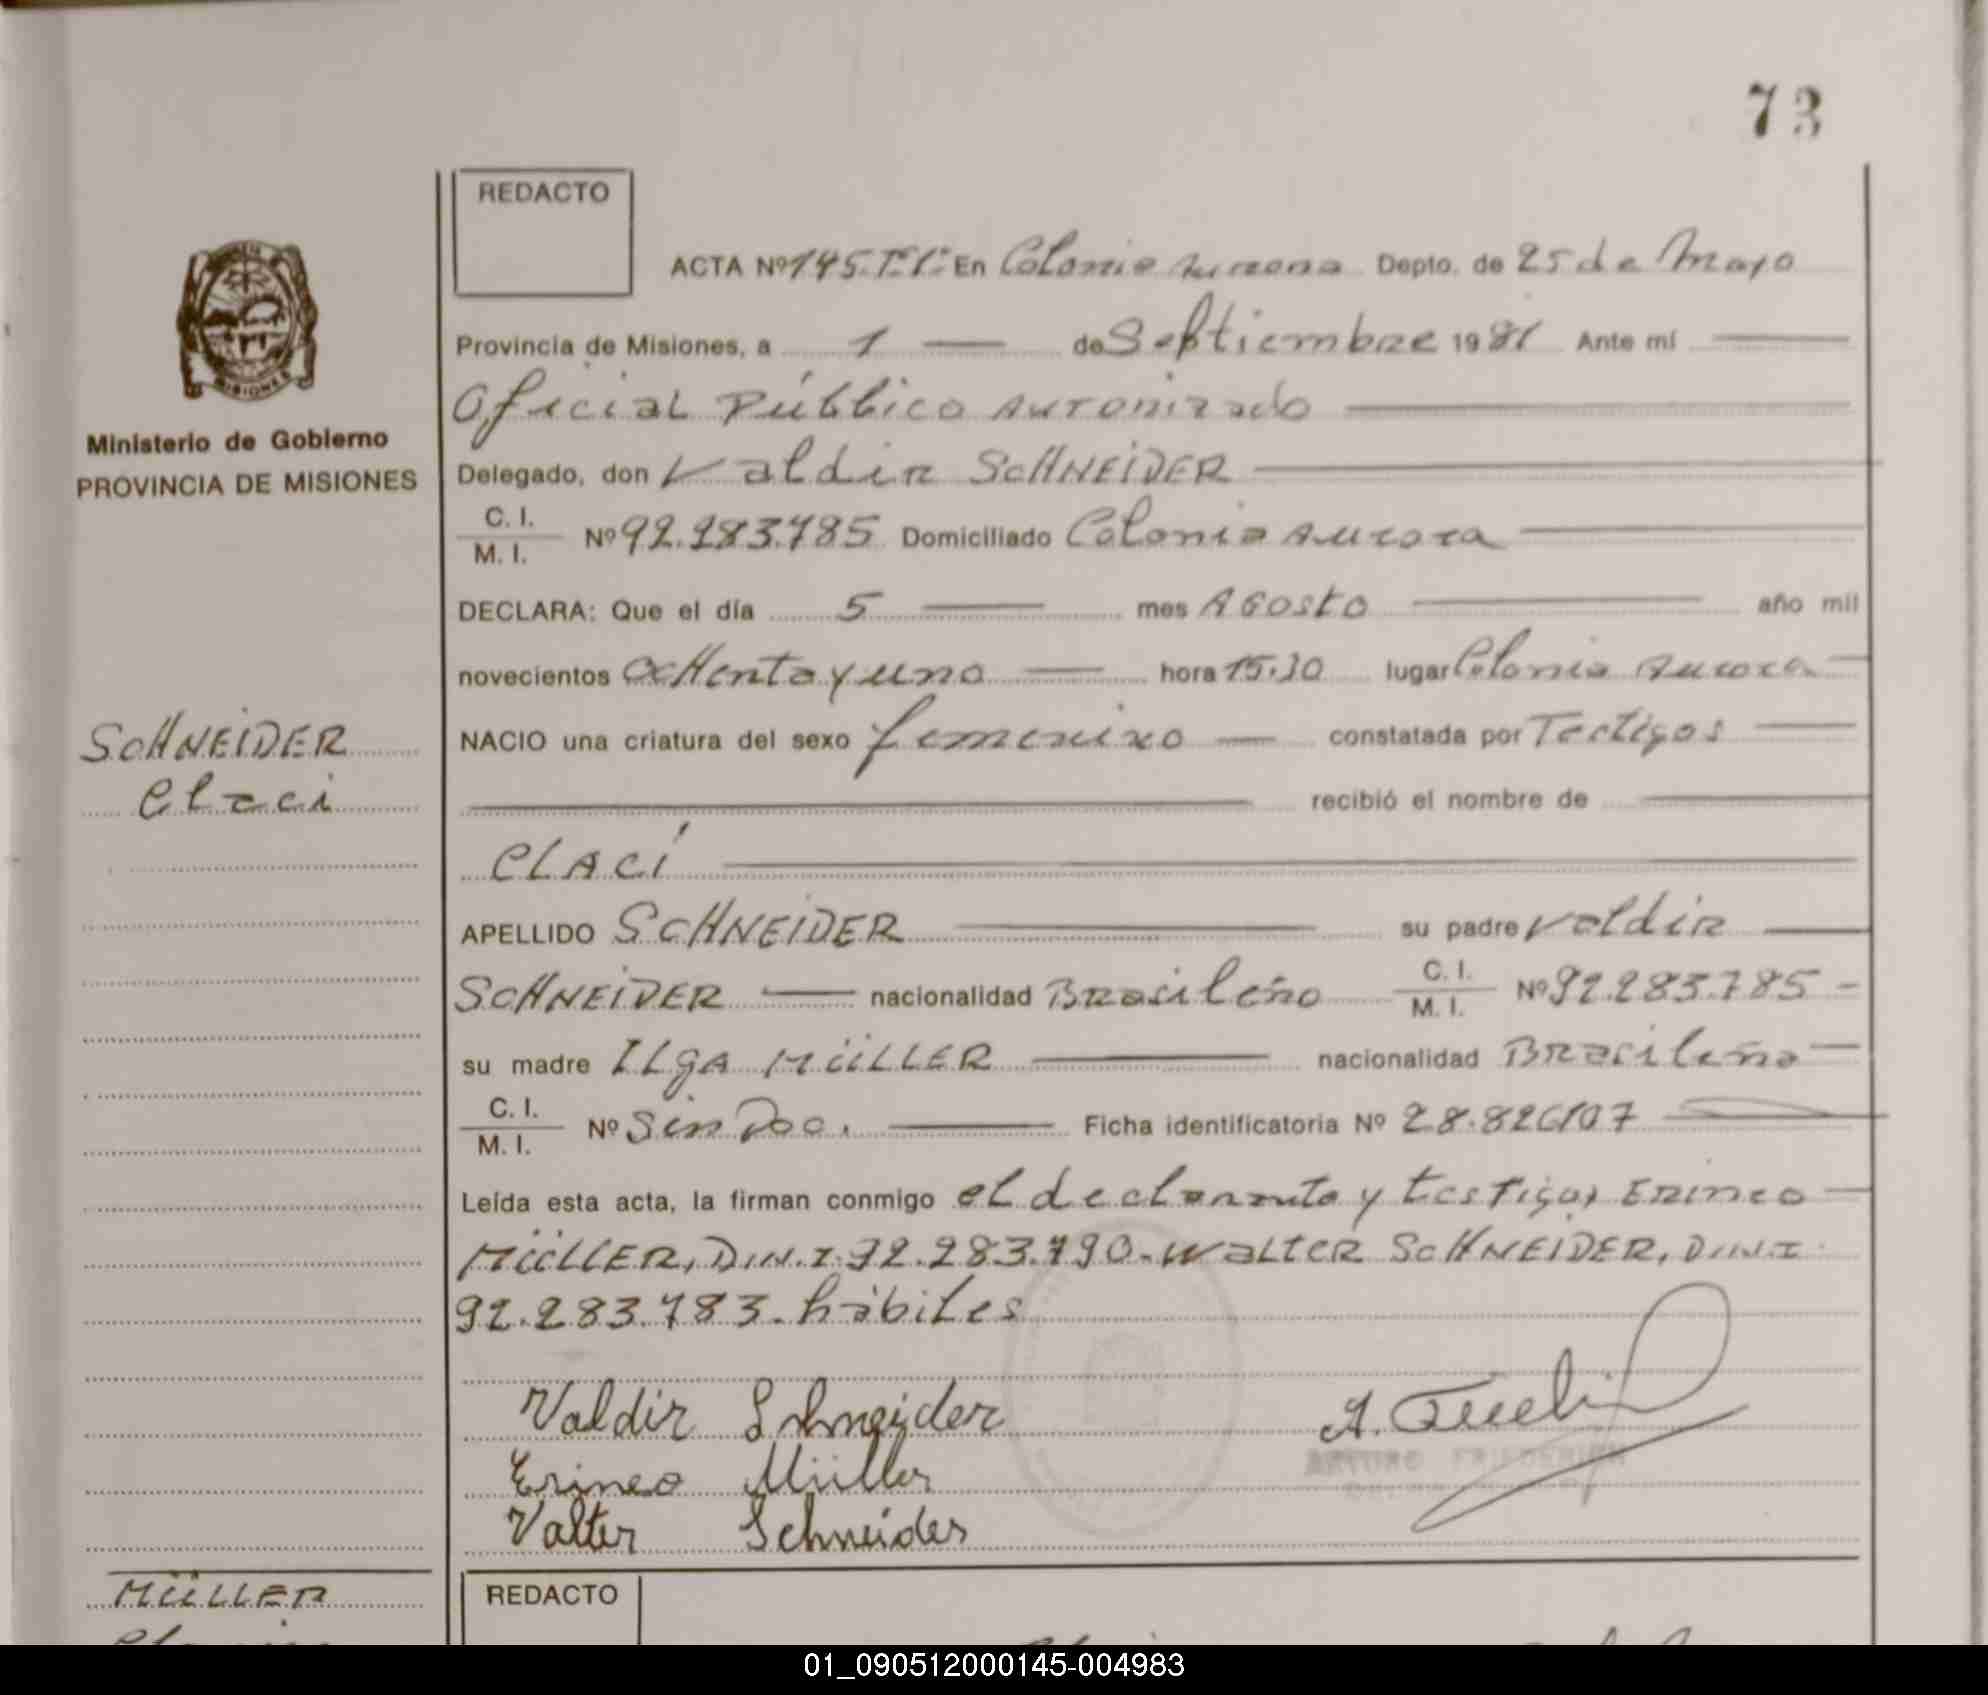 73
REDACTO
ACTA Nº 145.T.I. En Colonia Aurora Depto. de 25 de Mayo
Provincia de Misiones, a 1 de Septiembre 1981 Ante mí
Oficial Público Autorizado
Ministerio de Gobierno
PROVINCIA DE MISIONES
Delegado, don Valdir SCHNEIDER
C. I.
M. I. Nº 92.283.785 Domiciliado Colonia Aurora
DECLARA: Que el día 5 mes AGosto año mil
novecientos ocHenta y uno hora 15.30 lugar Colonia Aurora
SCHNEIDER
Claci
NACIO una criatura del sexo femenino constatada por Testigos
recibió el nombre de
CLACÍ
APELLIDO SCHNEIDER su padre Valdir
SCHNEIDER nacionalidad Brasileño C. I. M. I. Nº 92.283.785
su madre ILgA MÜLLER nacionalidad Brasileña
C. I.
M. I. Nº Sin Doc. Ficha identificatoria Nº 28.826107
Leída esta acta, la firman conmigo el declarante y testigos Erineo
MÜLLER, D.N.I. 92.283.790. Walter SCHNEIDER, D.N.I
92.283.783. hábiles
Valdir Schneider
Erineo Müller
Valter Schneider
ARTURO FRIEDERICH
MÜLLER
REDACTO
01_090512000145-004983